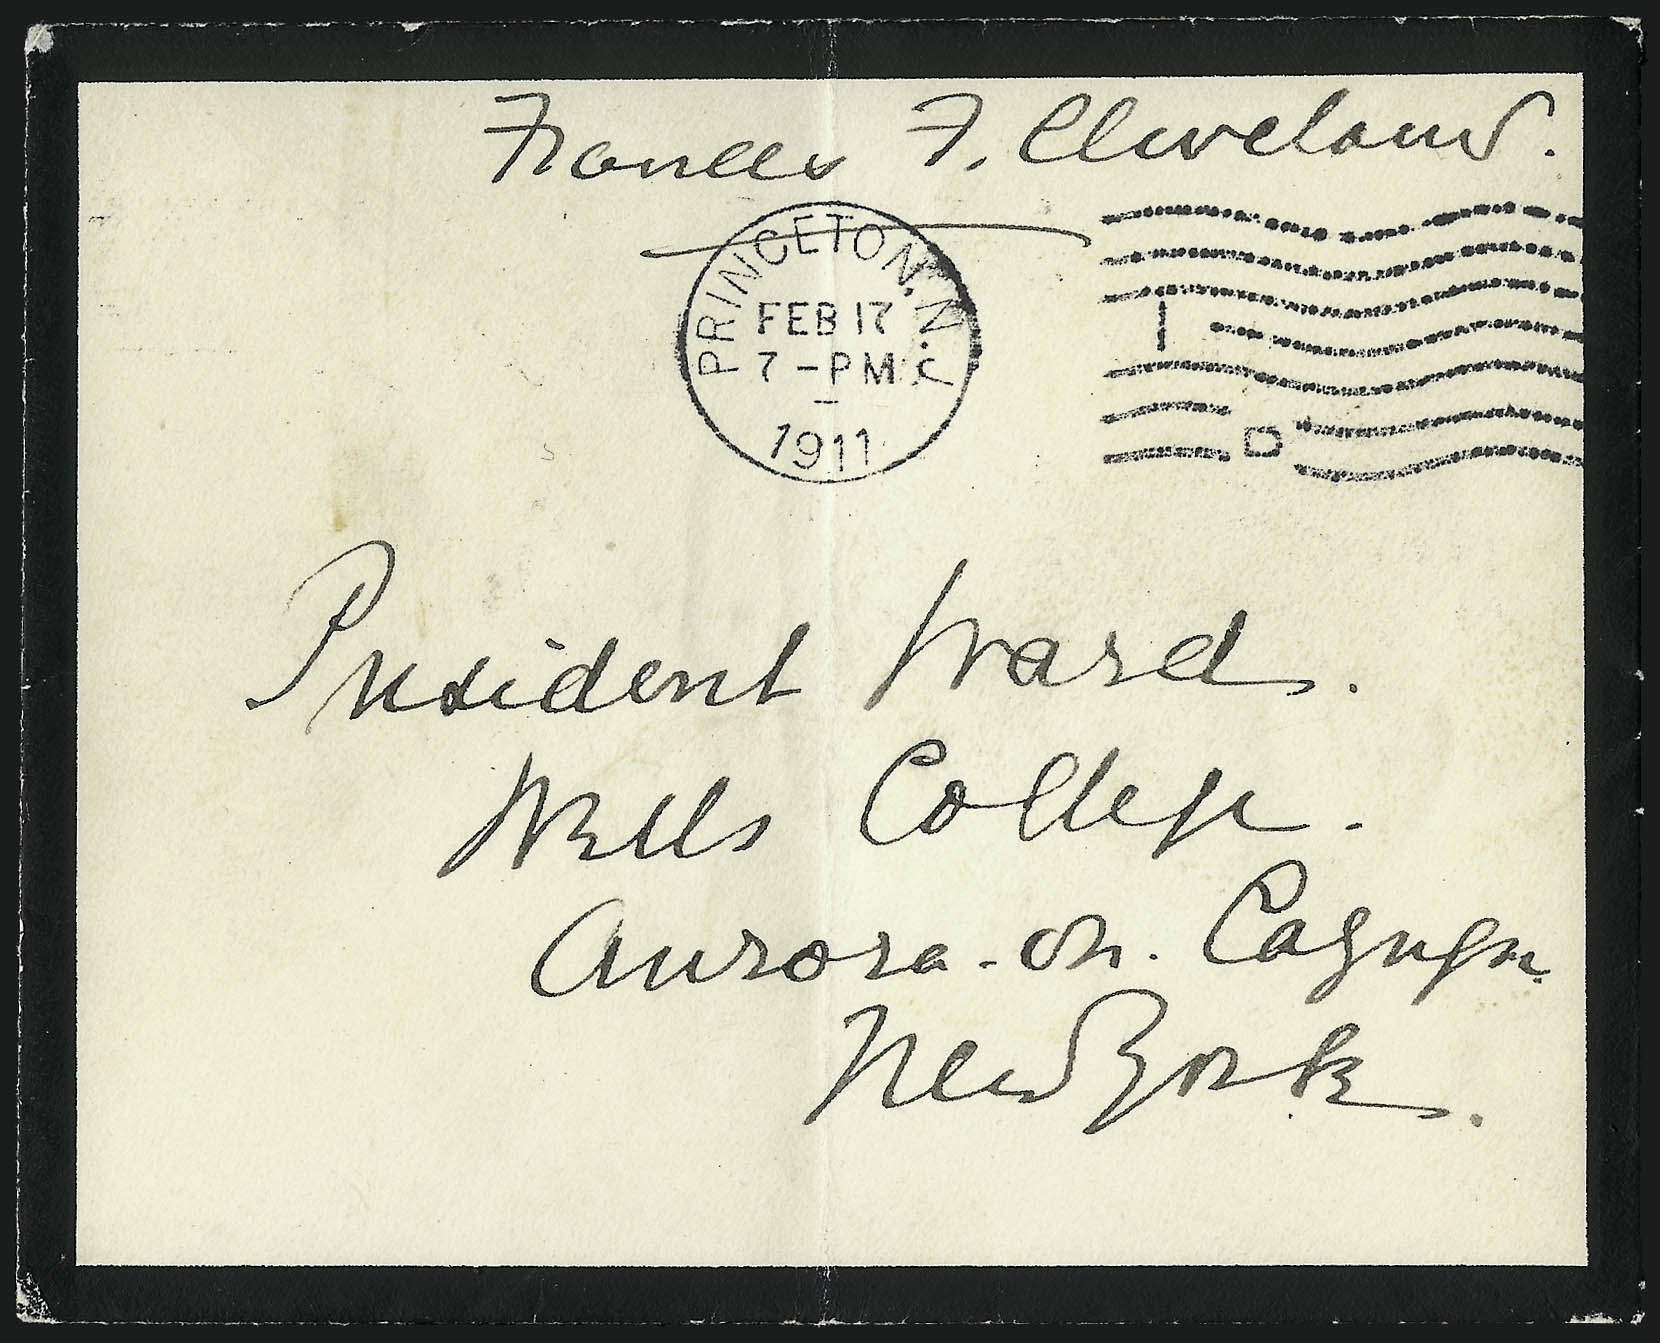 Frances F. Cleveland.
PRINCETON, N.J.
FEB 17
7-PM
1911
1 D
President Ward.
Wells College.
Aurora-on-Cayuga.
New York.